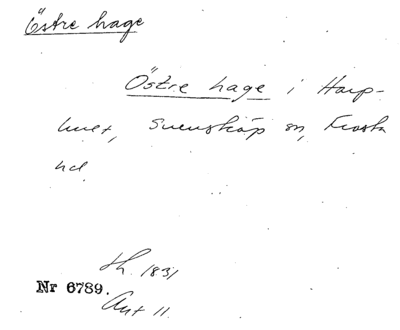 Östre hage
Östre hage i Harp-
huset, Svensköp sn, Frosta
hd
Sk. 1831
Nr 6789.
Akt 11.